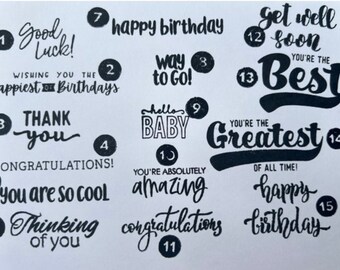 1 Good
Luck!
WISHING YOU THE 2
Happiest OF Birthdays
3 THANK
you
4
CONGRATULATIONS!
YOU ARE SO COOL
Thinking
OF YOU
7 happy birthday
WAY 8
TO GO!
hello 9
BABY
10
YOU'RE ABSOLUTELY
amazing
congratulations
11
get well
12 soon
YOU'RE THE
13 Best
YOU'RE THE
Greatest 14
OF ALL TIME!
happy
birthday 15